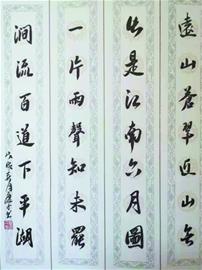 遠山蒼翠近山無
此是江南六月圖
一片雨聲知未罷
澗流百道下平湖